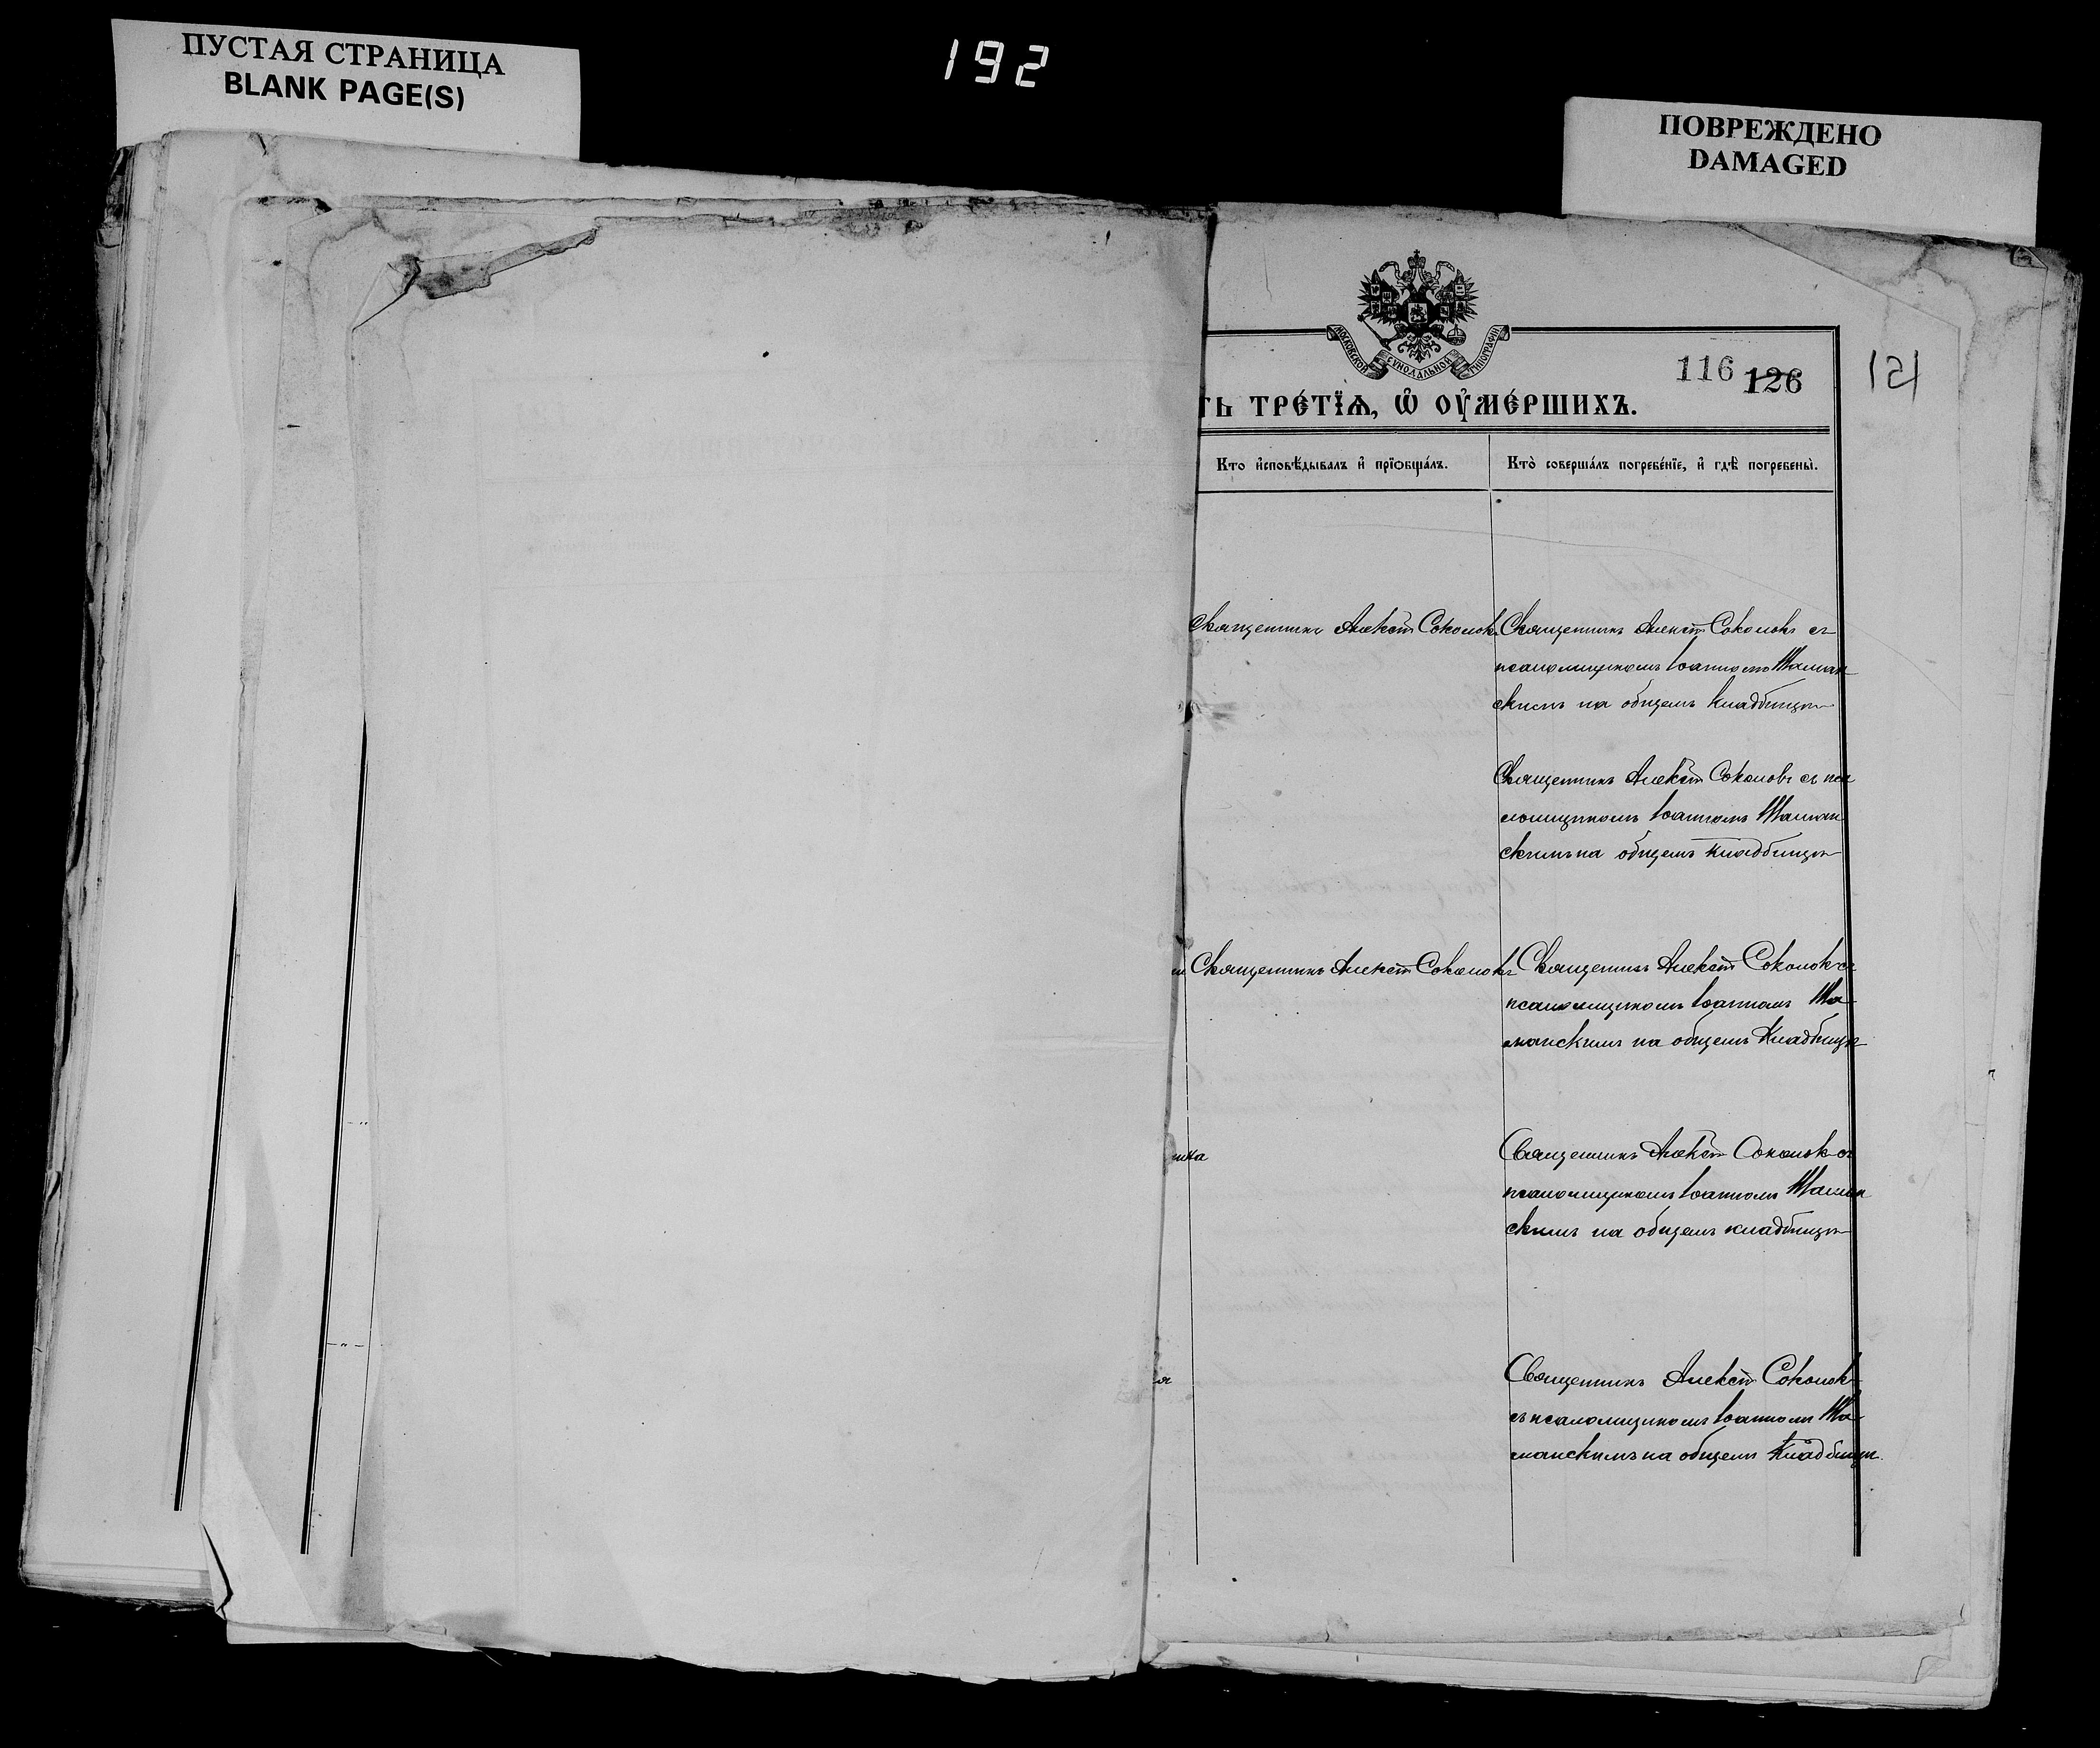 ПУСТАЯ СТРАНИЦА
BLANK PAGE(S)
192
ПОВРЕЖДЕНО
DAMAGED
МОСКОВСКОЙ СѴНОДАЛЬНОЙ ТИПОГРАФІИ
116 126 121
ТЬ ТРЕ́ТЇѦ, Ѽ ОУ҆МЕ́РШИХЪ.
Кто и҆сповѣ́дывалъ и҆ прїобща́лъ.
Кто̀ соверша́лъ погребе́нїе, и҆ гдѣ̀ погребены̀.
Священникъ Алекс Соколовъ
Священникъ Алекс Соколовъ съ
псаломщикомъ Іоанномъ Шаман
скимъ на общемъ кладбищѣ
Священникъ Алекс Соколовъ съ пса
ломщикомъ Іоанномъ Шаман
скимъ на общемъ кладбищѣ
Священникъ Алекс Соколовъ
Священникъ Алекс Соколовъ съ
псаломщикомъ Іоанномъ Ша
манскимъ на общемъ Кладбищѣ
Священникъ Алекс Соколовъ съ
псаломщикомъ Іоанномъ Шаман
скимъ на общемъ кладбищѣ
Священникъ Алекс Соколовъ
съ псаломщикомъ Іоанномъ Ша
манскимъ на общемъ Кладбищѣ.